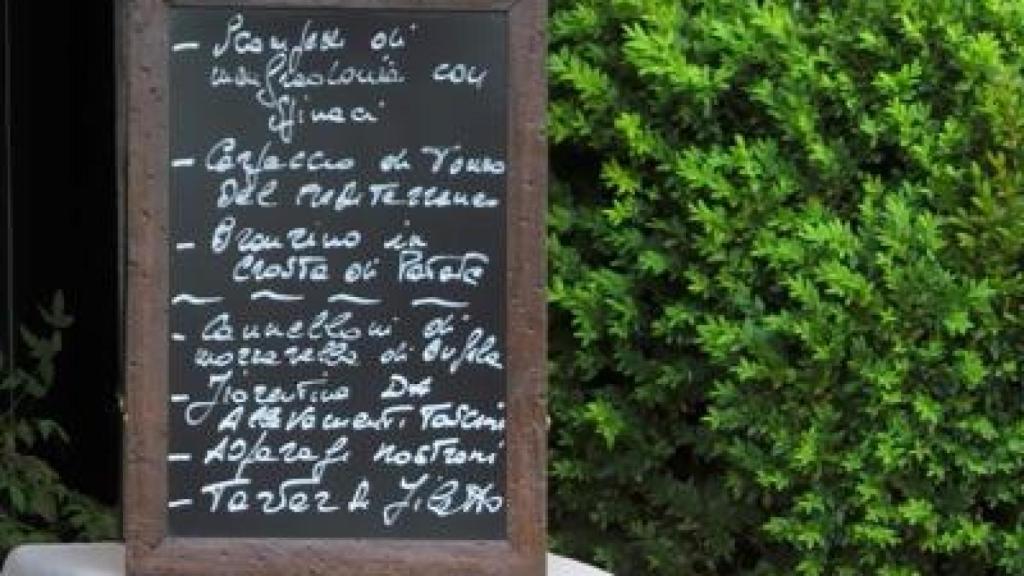 - Scampi di
con
Spinaci
- Carpaccio di Tonno
Del Mediterraneo
- Branzino in
Crosta di Patate
~ ~ ~ ~
- Cannelloni di
mozzarella di Bufala
- Fiorentina Da
Allevamenti Toscani
- Asparagi nostrani
-